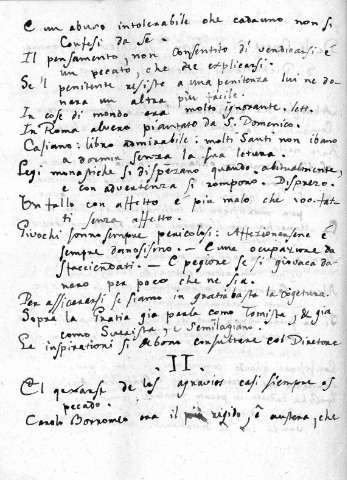 E un abuso intolerabile che cadauno non si
Confesi da se.
Il pensamento, non consentito di vendicarsi è
un pecato, che dee explicarsi.
Se il penitente resiste a una penitenza lui ne do-
nara un altra più facile.
In cose di mondo era molto ignorante. lett.
In Roma albero piantato da S. Domenico.
Casiano: libro admirabile: molti Santi non ibano
a dormir senza la sua letura.
Legi monastiche si dispezano quando abitualmente,
e con advertenza si rompono. Disprezo.
Un fallo con affetto è piu malo che 100 fat-
ti senza affetto.
Givochi sonno sempre pericolosi: Affezionarsene è
sempre danosissimo. – E una ocupazione da
sfacciendati. – E pegiore se si giovaca da-
naro per poco che ne sia.
Per assicurarsi se siamo in gratia basta la cogetura.
Sopra la Gratia gia parla como Tomista, & gia
como Suarista, e Semilagiano.
Le inspirationi si debono consultare col Diretore
.II.
El quexarse de los agravios casi siempre es
pecado.
Carolo Borromeo era il più regido, ò austera, che